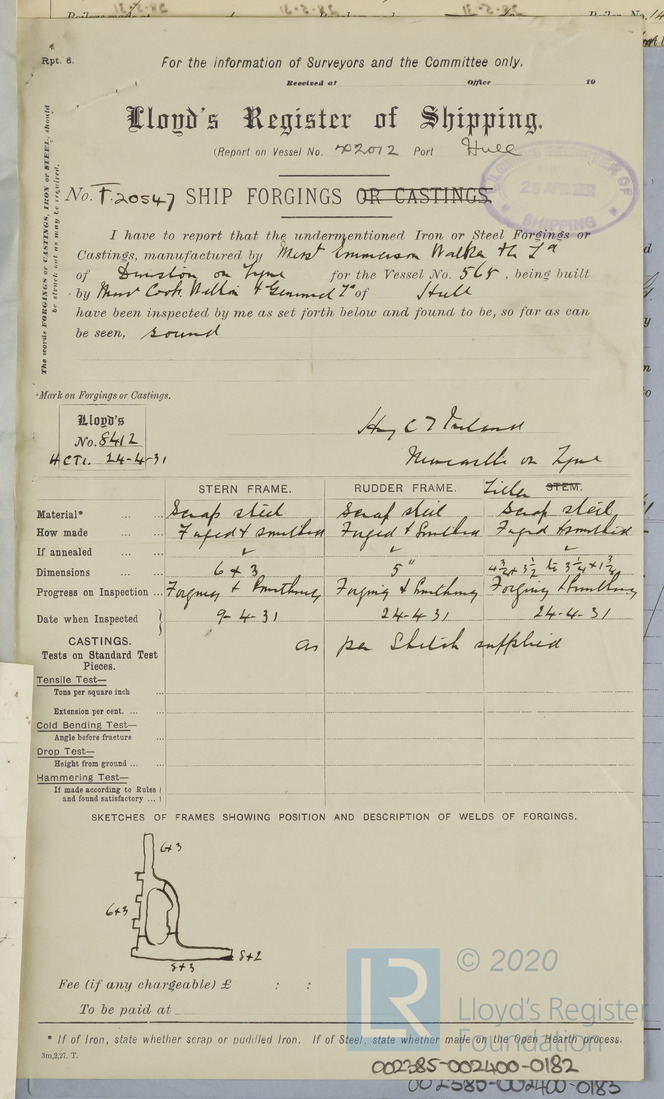 Rpt. 6.
For the information of Surveyors and the Committee only.
Received at Office 19
Lloyd's Register of Shipping.
(Report on Vessel No. 702012 Port Hull
The words FORGINGS or CASTINGS, IRON or STEEL, should
be struck out as may be required.
SHIPPING
No. T.20547 SHIP FORGINGS OR CASTINGS.
I have to report that the undermentioned Iron or Steel Forgings or
Castings, manufactured by Messrs Emmerson Walker
of Dunston on Tyne for the Vessel No. 565, being built
by Messrs Cook Welton & Gemmell Ld of Hull
have been inspected by me as set forth below and found to be, so far as can
be seen, sound
Mark on Forgings or Castings.
Lloyd's
No. 8412
HCTI. 24-4-31
Newcastle on Tyne
STERN FRAME. RUDDER FRAME. Tiller STEM.
Material* Scrap steel Scrap steel Scrap steel
How made Forged & smithed Forged & Smithed Forged & smithed
If annealed
Dimensions 6 x 3 5" 4 3/4 x 3 1/2 to 3 1/4 x 1 3/4
Progress on Inspection Forging & Smithing Forging & Smithing Forging & Smithing
Date when Inspected 9-4-31 24-4-31 24-4-31
CASTINGS. as per Sketch supplied
Tests on Standard Test
Pieces.
Tensile Test—
Tons per square inch
Extension per cent.
Cold Bending Test—
Angle before fracture
Drop Test—
Height from ground
Hammering Test—
If made according to Rules
and found satisfactory
SKETCHES OF FRAMES SHOWING POSITION AND DESCRIPTION OF WELDS OF FORGINGS.
6x3
6x3
8x3
8x2
Fee (if any chargeable) £ : :
To be paid at
LR
© 2020
Lloyd's Register
Foundation
* If of Iron, state whether scrap or puddled Iron. If of Steel, state whether made on the Open Hearth process.
3m,2,27. T.
002385-002400-0182
002385-002400-0183